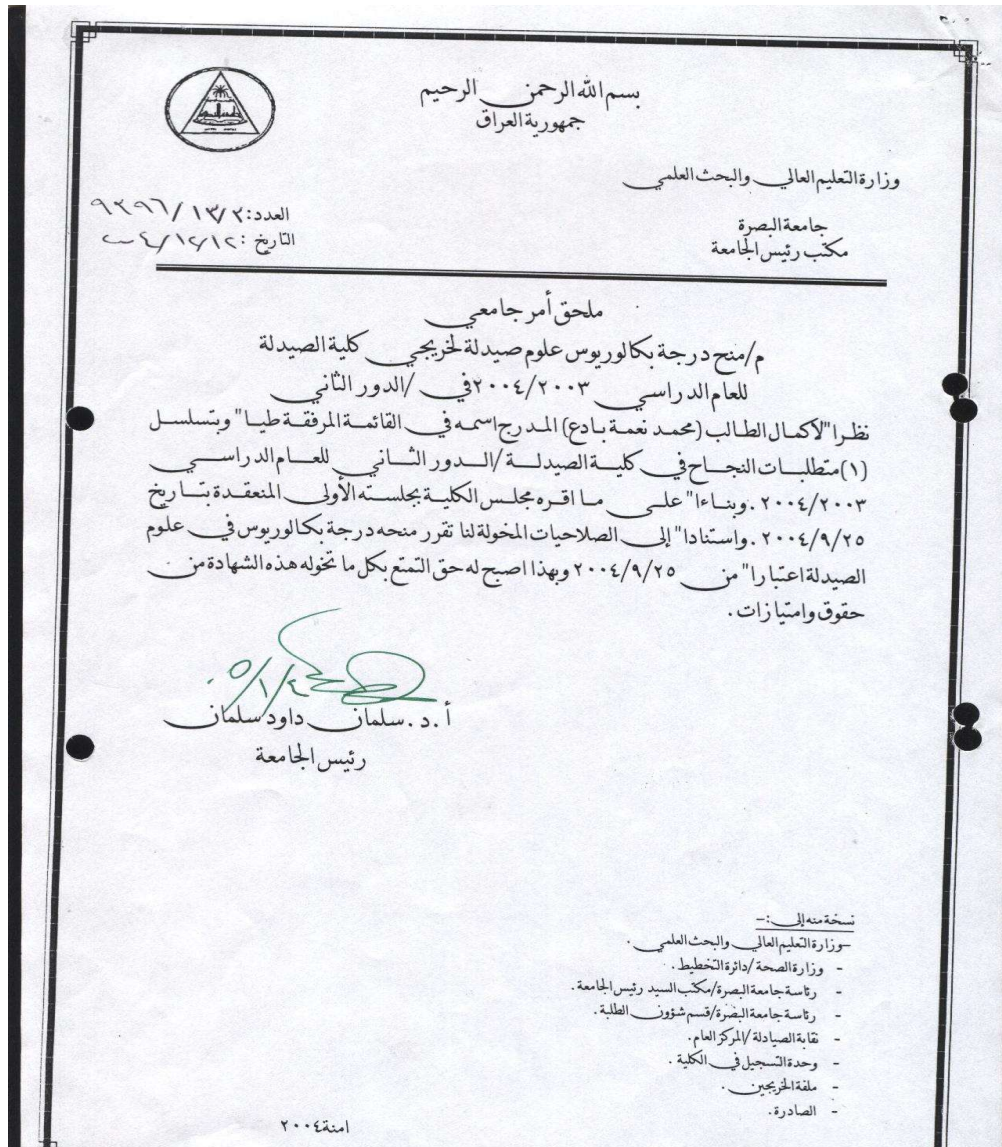 بسم الله الرحمن الرحيم
جمهورية العراق
وزارة التعليم العالي والبحث العلمي
جامعة البصرة
مكتب رئيس الجامعة
العدد: ٩٣٩٦/١٣/٢
التاريخ: ٢٠٠٤/١٢/١٢
ملحق أمر جامعي
م/منح درجة بكالوريوس علوم صيدلة لخريجي كلية الصيدلة
للعام الدراسي ٢٠٠٤/٢٠٠٣في /الدور الثاني
نظرا"لأكمال الطالب (محمد نعمة بادع) المدرج اسمه في القائمة المرفقة طيا" وبتسلسل
(١)متطلبات النجاح في كلية الصيدلة /الدور الثاني للعام الدراسي
٢٠٠٤/٢٠٠٣ .وبناءا" على ما اقره مجلس الكلية بجلسته الأولى المنعقدة بتاريخ
٢٠٠٤/٩/٢٥ .واستنادا" إلى الصلاحيات المخولة لنا تقرر منحه درجة بكالوريوس في علوم
الصيدلة اعتبارا" من ٢٠٠٤/٩/٢٥ وبهذا اصبح له حق التمتع بكل ما تخوله هذه الشهادة من
حقوق وامتيازات .
٠٥/١/٤
أ.د.سلمان داود سلمان
رئيس الجامعة
نسخة منه إلى :-
-وزارة التعليم العالي والبحث العلمي .
- وزارة الصحة /دائرة التخطيط .
- رئاسة جامعة البصرة/مكتب السيد رئيس الجامعة .
- رئاسة جامعة البصرة/قسم شؤون الطلبة .
- نقابة الصيادلة /المركز العام .
- وحدة التسجيل في الكلية .
- ملفة الخريجين .
- الصادرة .
امنة٢٠٠٤